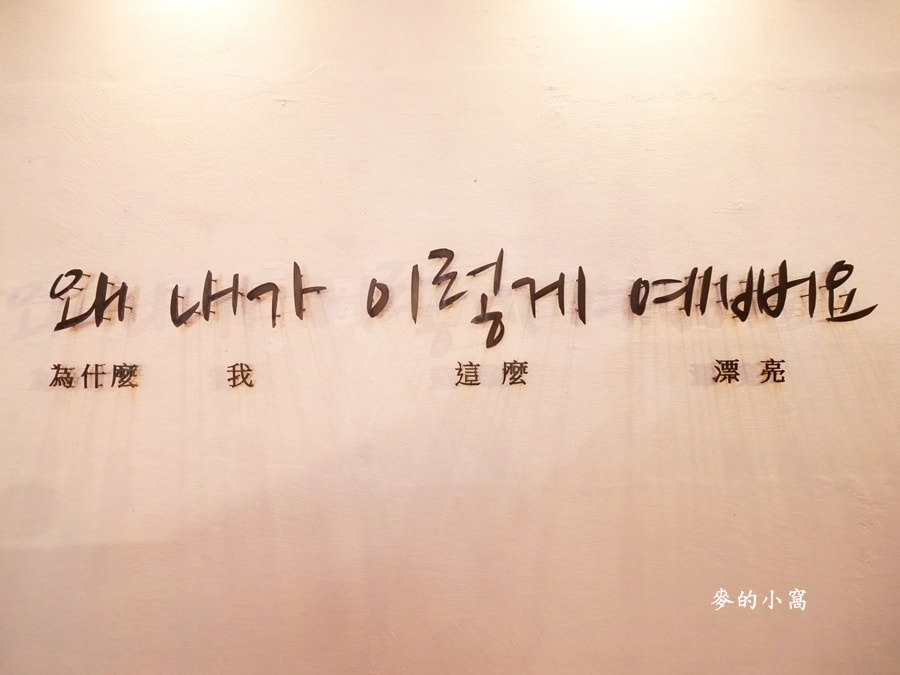 왜 내가 이렇게 예뻐요
為什麼 我 這麼 漂亮
麥的小窩